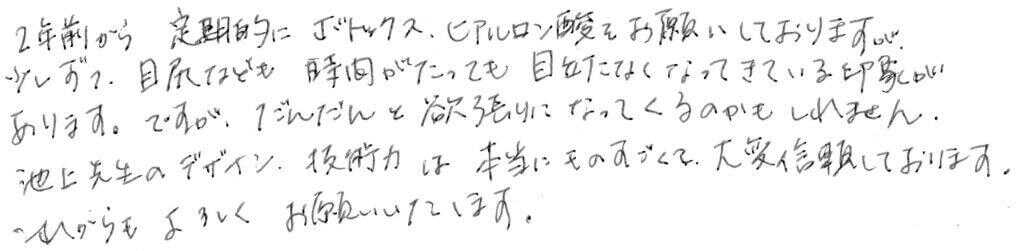 2年前から 定期的に ボトックス、ヒアルロン酸をお願いしておりますが、
少しずつ、目尻なども 時間がたっても 目立たなくなってきている印象が
あります。ですが、だんだんと欲張りになってくるのかもしれません。
池上先生のデザイン、技術力は本当にものすごくて、大変信頼しております。
これからもよろしくお願いいたします。